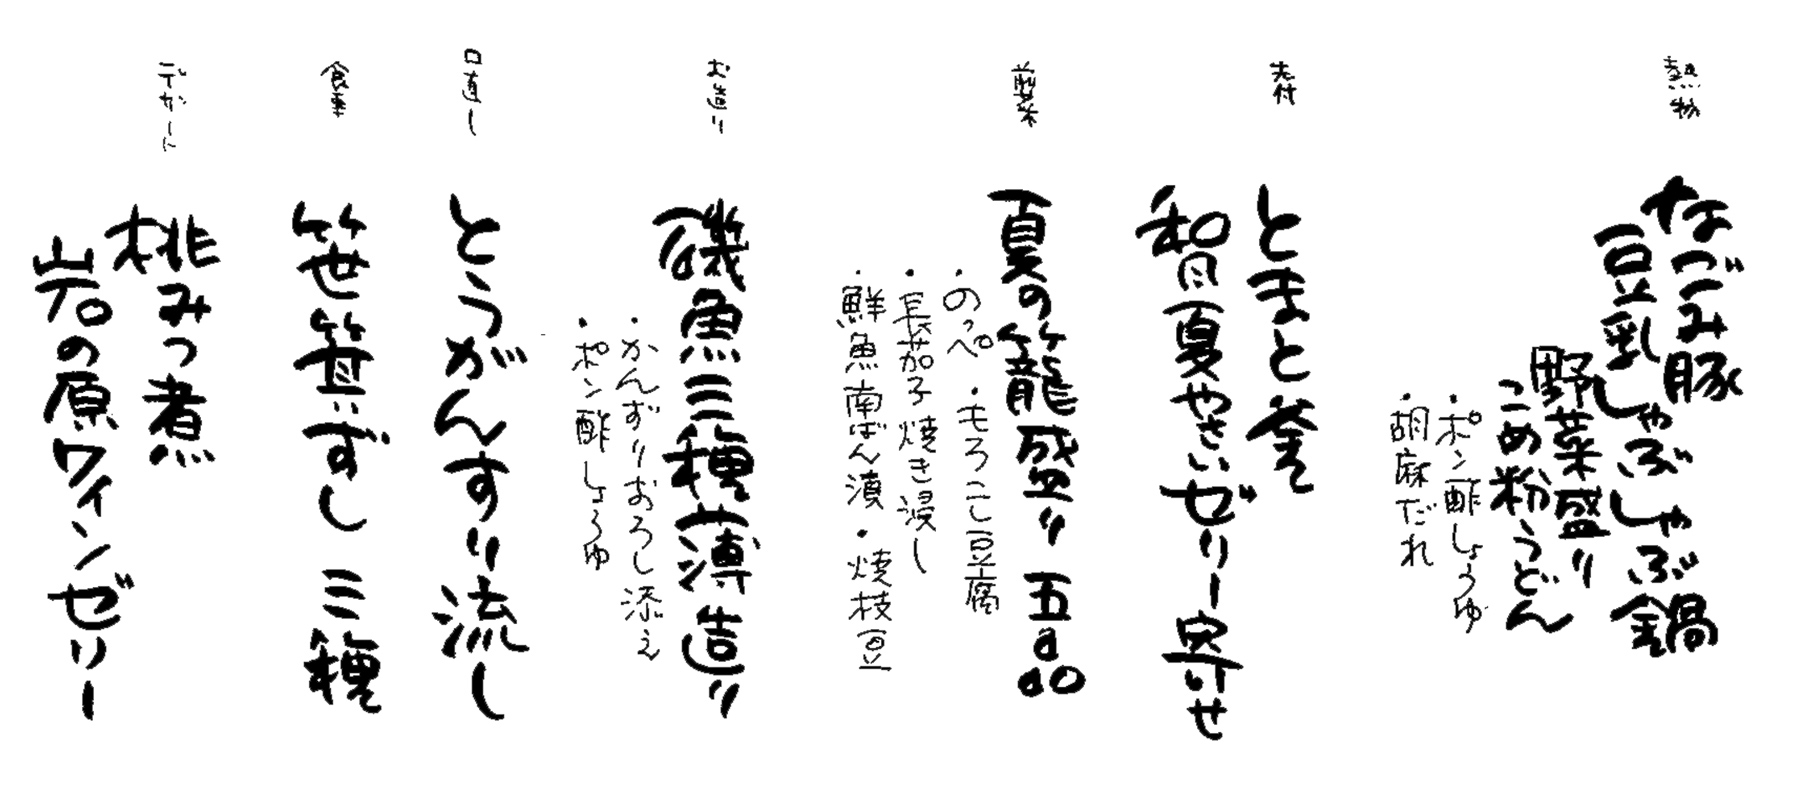 熱物
なごみ豚
豆乳しゃぶしゃぶ鍋
野菜盛り
こめ粉うどん
・ポン酢しょうゆ
・胡麻だれ
先付
とまと釜
和風夏やさいゼリー寄せ
前菜
夏の籠盛り 五品
・のっぺ ・もろこし豆腐
・長茄子焼き浸し
・鮮魚南ばん漬 ・焼枝豆
お造り
磯魚三種薄造り
・かんずりおろし添え
・ポン酢しょうゆ
口直し
とうがんすり流し
食事
笹箕ずし 三種
デザートに
桃みつ煮
岩の原ワインゼリー